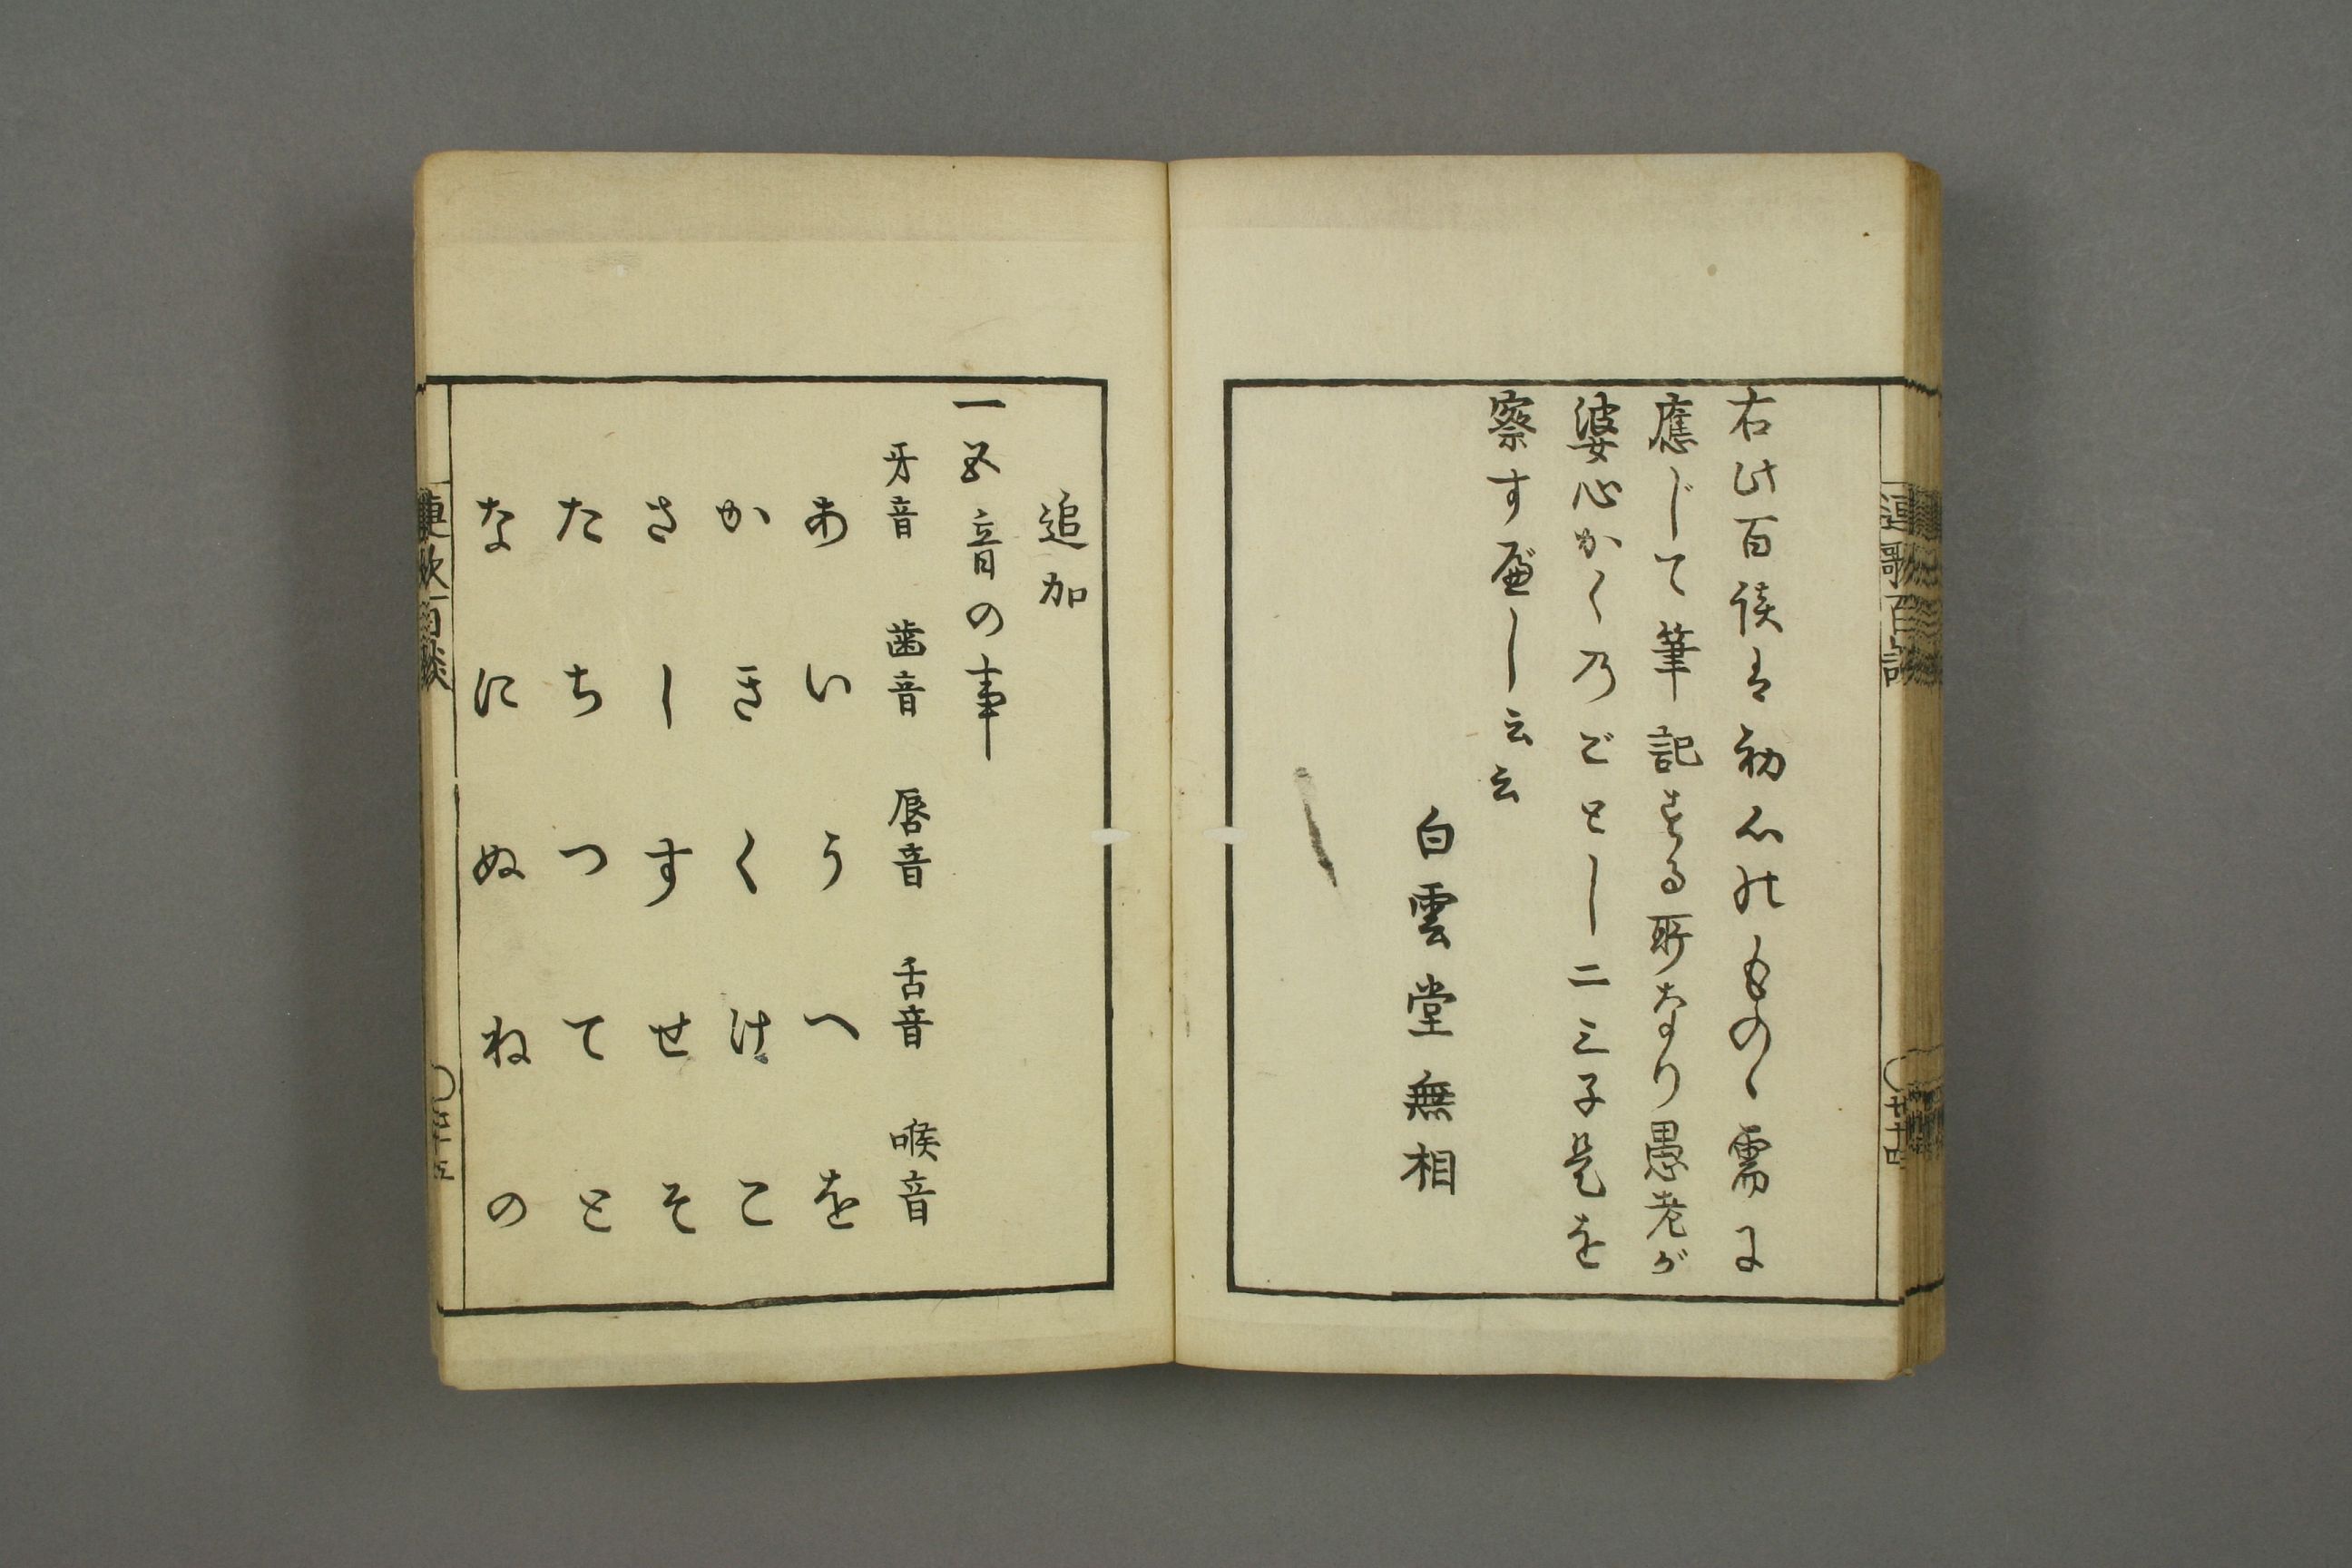 右此百談は初心のものゝ需に
應じて筆記する所なり愚老が
婆心かくのごとし二三子是を
察すべし云云
白雲堂無相
追加
一五音の事
牙音 歯音 唇音 舌音 喉音
あ い う へ を
か き く け こ
さ し す せ そ
た ち つ て と
な に ぬ ね の
連歌百談